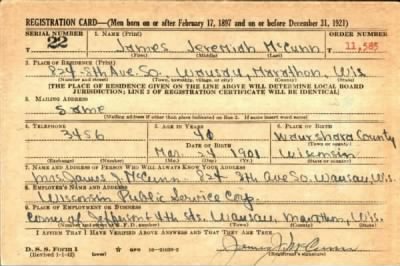 REGISTRATION CARD—(Men born on or after February 17, 1897 and on or before December 31, 1921)
SERIAL NUMBER 1. NAME (Print) ORDER NUMBER
22 James Jeremiah McCunn 11,585
(First) (Middle) (Last)
2. PLACE OF RESIDENCE (Print)
824 - 8th Ave So. Wausau, Marathon, Wis
(Number and street) (Town, township, village, or city) (County) (State)
[THE PLACE OF RESIDENCE GIVEN ON THE LINE ABOVE WILL DETERMINE LOCAL BOARD
JURISDICTION; LINE 2 OF REGISTRATION CERTIFICATE WILL BE IDENTICAL]
3. MAILING ADDRESS
Same
[Mailing address if other than place indicated on line 2. If same insert word same]
4. TELEPHONE 5. AGE IN YEARS 6. PLACE OF BIRTH
3456 40 Waushara County
DATE OF BIRTH (Town or county)
Mar. 1901 Wisconsin
(Exchange) (Number) (Mo.) (Day) (Yr.) (State or country)
7. NAME AND ADDRESS OF PERSON WHO WILL ALWAYS KNOW YOUR ADDRESS
Mrs James J. McCunn 824 8th Ave So. Wausau, Wis.
8. EMPLOYER'S NAME AND ADDRESS
Wisconsin Public Service Corp.
9. PLACE OF EMPLOYMENT OR BUSINESS
Corner of Jefferson & 4th Sts. Wausau, Marathon, Wis.
(Number and street or R. F. D. number) (Town) (County) (State)
I AFFIRM THAT I HAVE VERIFIED ABOVE ANSWERS AND THAT THEY ARE TRUE.
D. S. S. Form 1
(Revised 1-1-42) GPO 16—21630-2 James J. McCunn
(Registrant's signature)